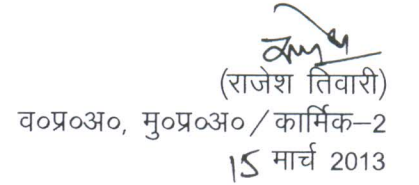 (राजेश तिवारी)
व०प्र०अ०, मु०प्र०अ० / कार्मिक–2
15 मार्च 2013